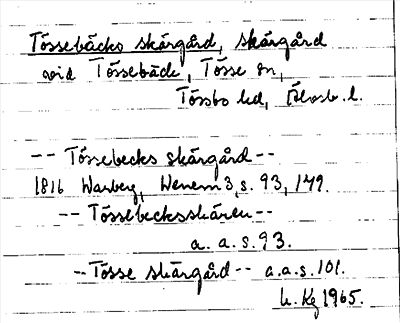 Tössebäcks skärgård, skärgård
vid Tössebäck, Tösse sn,
Tössbo hd, Älvsb. l.
-- Tössebecks skärgård --
1816 Warberg, Wenern 3, s. 93, 179.
-- Tössebecksskären --
a. a. s. 93.
- Tösse skärgård -- a. a. s. 101.
1965.